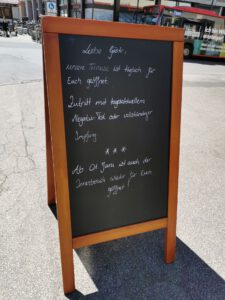 Liebe Gäste,
unsere Terrasse ist täglich für
Euch geöffnet.
Zutritt mit tagesaktuellem
Negativ-Test oder vollständiger
Impfung
* * *
Ab 01. Juni ist auch der
Innenbereich wieder für Euch
geöffnet!